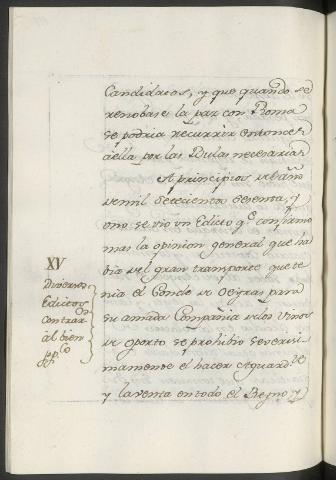 Candidatos, y que quando se
renobase la paz con Roma
se podria recurrir entonces
aella por las Bulas necesarias
A principios de el año
de mil Setecientos Sesenta, y
ono se vio un Edicto qe. confirmo
mas la opinion general que ha
bia del gran transporte que te
nia el Conde de Oeyras para
su amada Compañia de los Vinos
de oporto se prohibio severisi
mamente el hacer Aguard.te
y la venta en todo el Reyno y
XV
Diversos
Edictos
contrari
al bien
pp.co